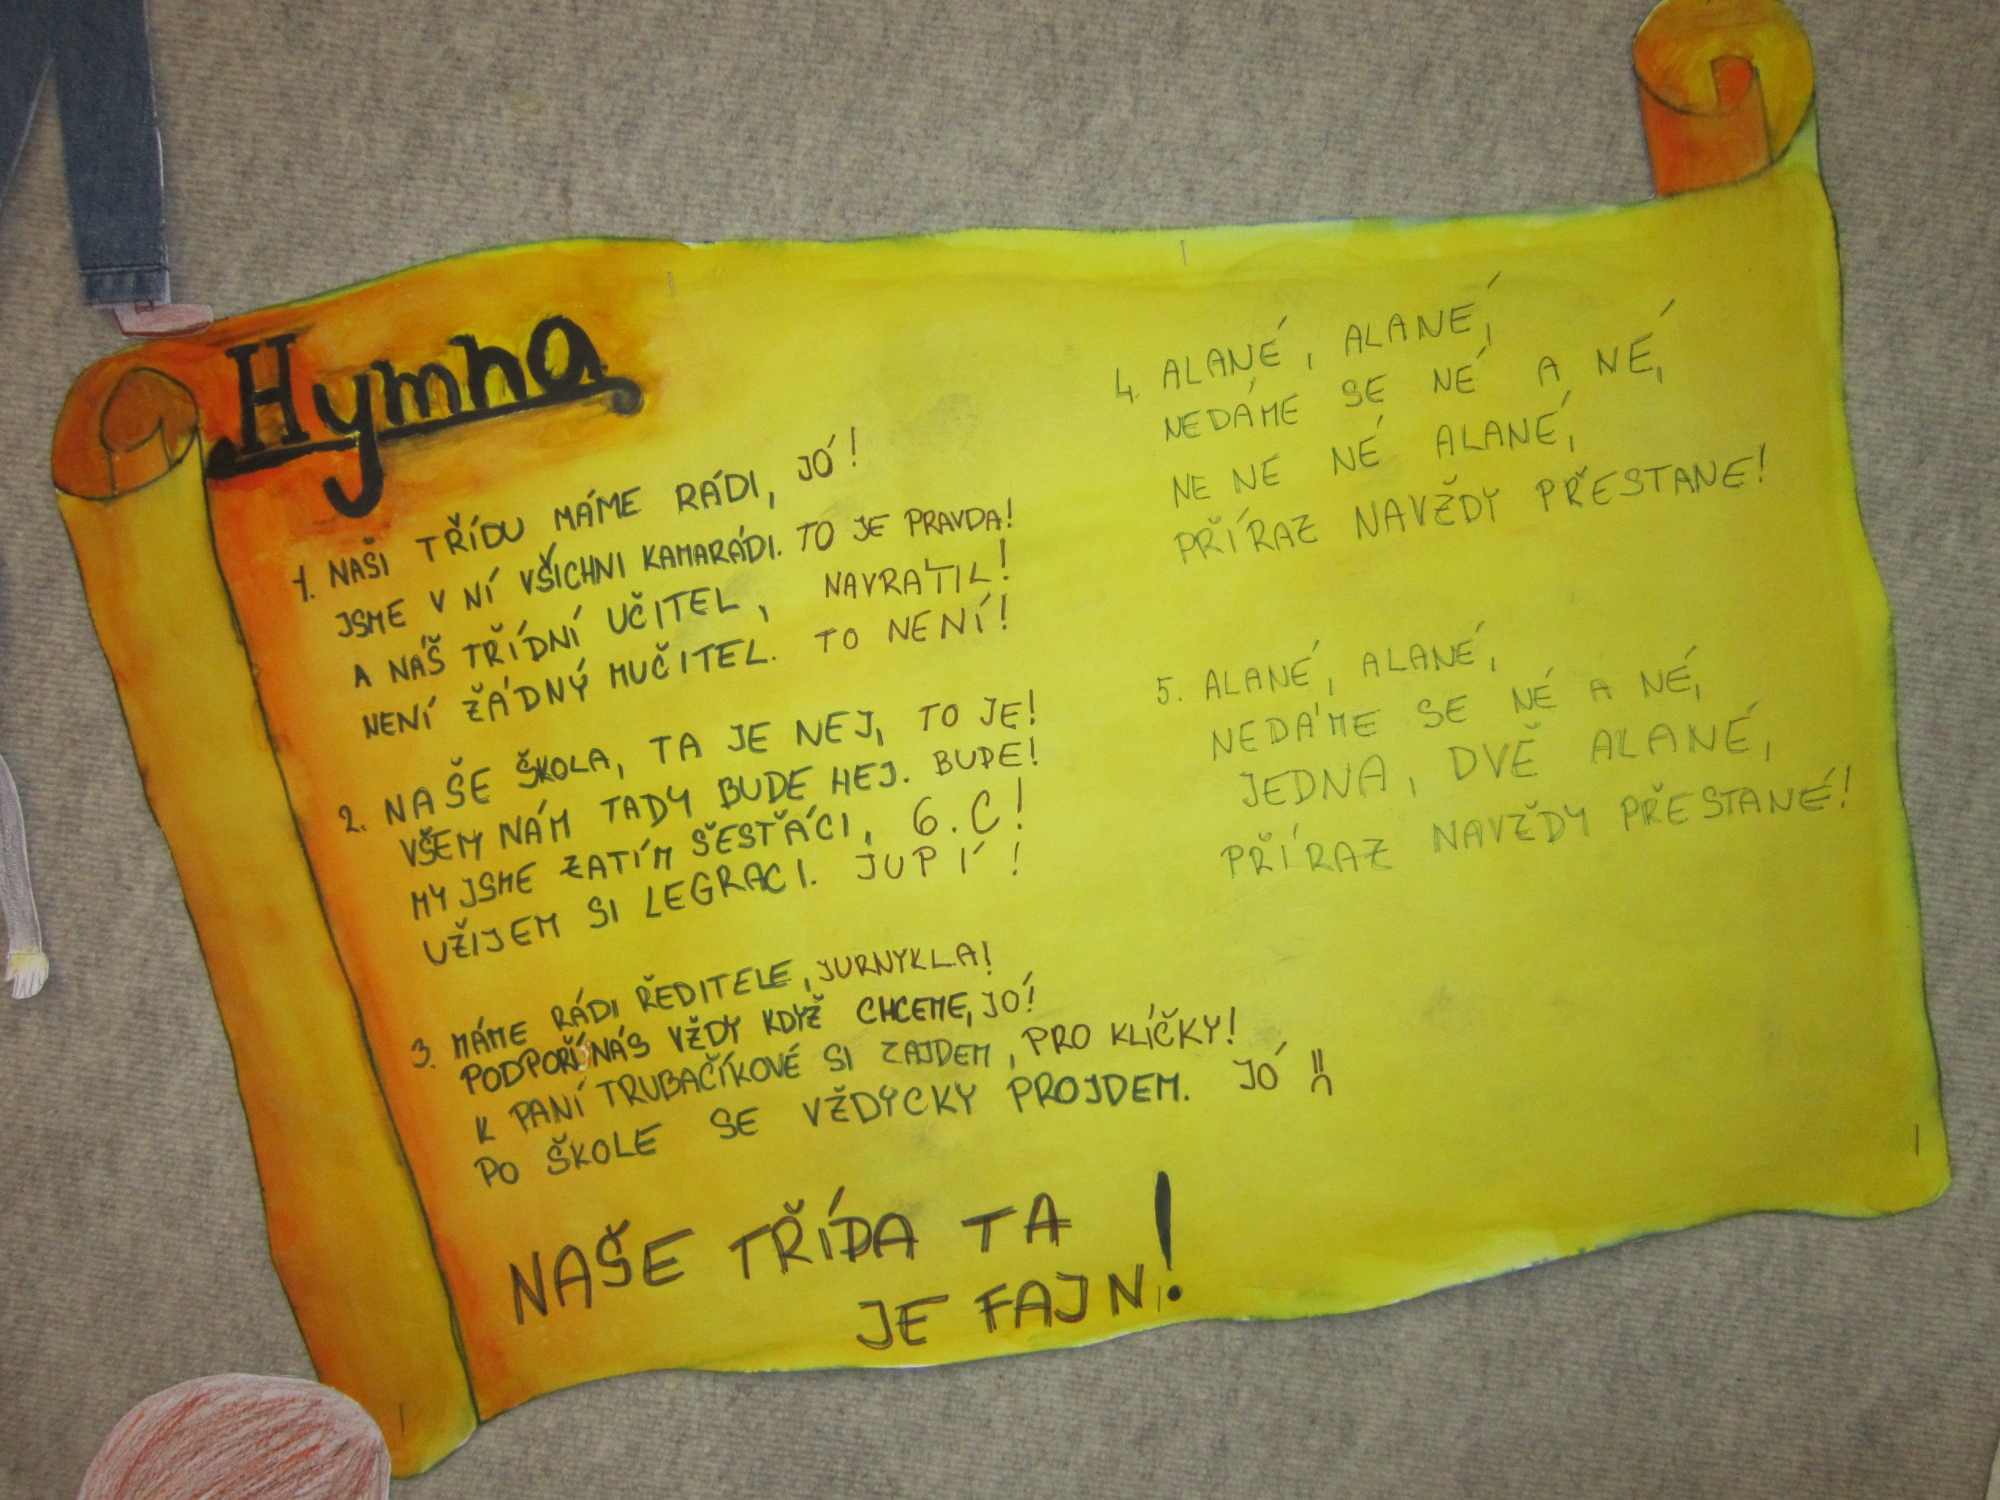 Hymna
1. NAŠI TŘÍDU MÁME RÁDI, JÓ!
JSME V NÍ VŠICHNI KAMARÁDI. TO JE PRAVDA!
A NÁŠ TŘÍDNÍ UČITEL, NAVRÁTIL!
NENÍ ŽÁDNÝ MUČITEL. TO NENÍ!
2. NAŠE ŠKOLA, TA JE NEJ, TO JE!
VŠEM NÁM TADY BUDE HEJ. BUDE!
MY JSME ZATÍM ŠESŤÁCI, 6.C!
UŽIJEM SI LEGRACI. JUPÍ!
3. MÁME RÁDI ŘEDITELE, JURNYKLA!
PODPOŘÍ NÁS VŽDY KDYŽ CHCEME, JÓ!
K PANÍ TRUBAČÍKOVÉ SI ZAJDEM, PRO KLÍČKY!
PO ŠKOLE SE VŽDYCKY PROJDEM. JÓ!!
NAŠE TŘÍDA TA
JE FAJN!
4. ALANÉ, ALANÉ,
NEDÁME SE NÉ A NÉ,
NE NE NÉ ALANÉ,
PŘÍRAZ NAVŽDY PŘESTANE!
5. ALANÉ, ALANÉ,
NEDÁME SE NÉ A NÉ,
JEDNA, DVĚ ALANÉ,
PŘÍRAZ NAVŽDY PŘESTANÉ!